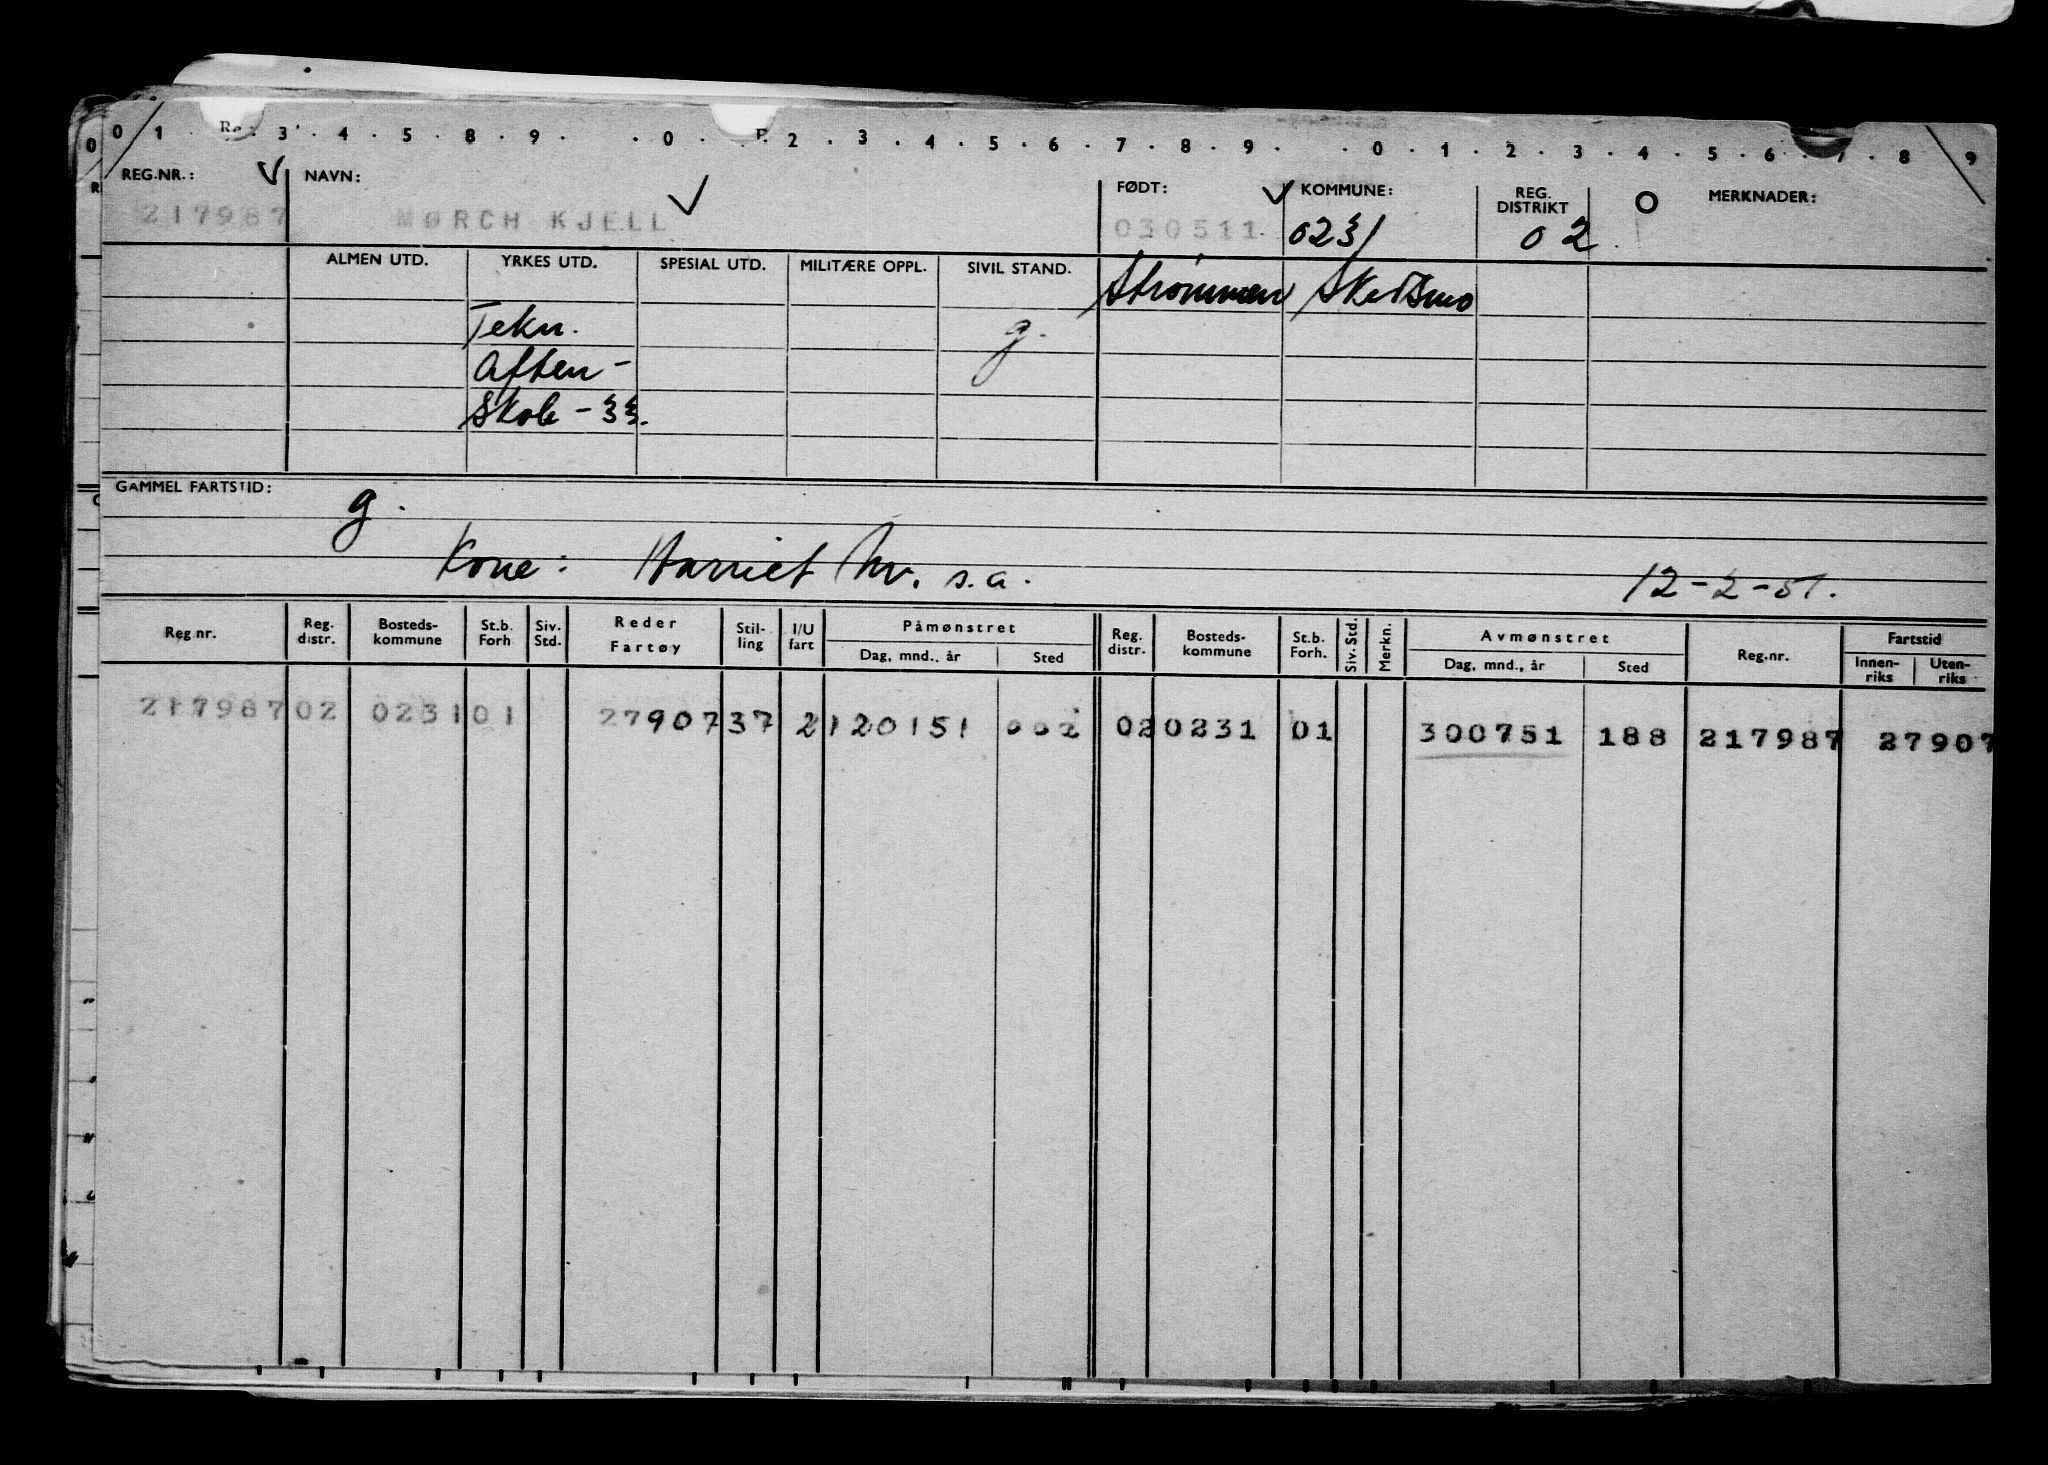 0 1 Re. 3 . 4 . 5 . 8 . 9 . . 0 . P. 2 . 3 . 4 . 5 . 6 . 7 . 8 . 9 . . 0 . 1 . 2 . 3 . 4 . 5 . 6 . 7 . 8 9
REG.NR.: NAVN: FØDT: KOMMUNE: REG. DISTRIKT O MERKNADER:
217987 MØRCH KJELL 030511 0231 02
ALMEN UTD. YRKES UTD. SPESIAL UTD. MILITÆRE OPPL. SIVIL STAND. Strømmen Skedsmo
Tekn. g.
Aften-
Skole - 33.
GAMMEL FARTSTID: g.
Kone: Harriet M. s.a. 12-2-51.
Reg.nr. Reg. distr. Bosteds- kommune St.b. Forh Siv. Std. Reder Fartøy Stil- ling I/U fart Påmønstret Dag, mnd., år Sted Reg. distr. Bosteds- kommune St.b. Forh. Siv. Std. Merkn. Avmønstret Dag, mnd., år Sted Reg.nr. Fartstid Innen- riks Uten- riks
217987 02 0231 01 27907 37 2 120151 002 02 0231 01 300751 188 217987 27907